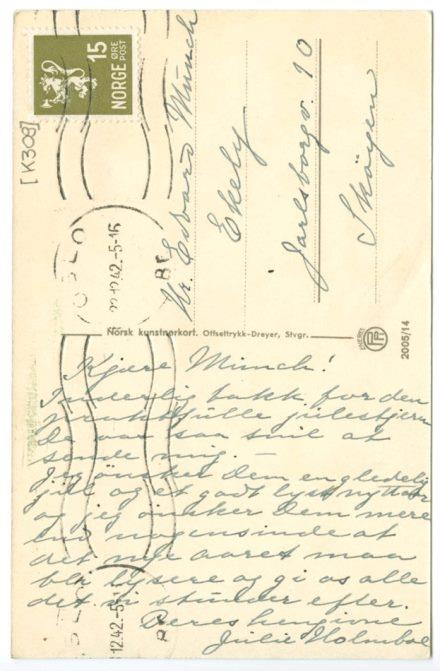 15
NORGE
ØRE
POST
[K308]
OSLO
22.12.42.-5-16
BR
Hr. Edvard Munch
Ekely
Jarlsborgv. 10
Skøyen
Norsk kunstnerkort. Offsettrykk-Dreyer, Stvgr.
ENERETT
2005/14
Kjære Munch!
Inderlig takk for den
praktfulle julestjerne
De var saa snil at
sende mig. —
Jeg ønsker Dem en gledelig
jul og et godt lyst nyttaar
og jeg ønsker Dem mere
end nogensinde at
det nye aaret maa
bli lysere og gi os alle
det vi stunder efter.
Deres hengivne
Julie Holmboe
12.42.-5-